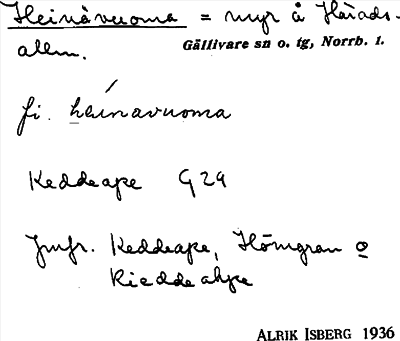 Heinävuoma = myr å Härads-
allm. Gällivare sn o. tg, Norrb. l.
fi. héinavuoma
Keddeape G 29
Jmfr. Keddeape, Hömyran o
Kieddeahpe
ALRIK ISBERG 1936